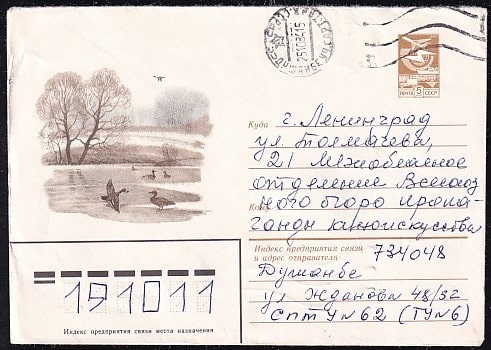 251084 15
ПОЧТА 5 СССР
Куда г. Ленинград
ул. Толмачева,
21 Межобластное
отделение Всесоюз
ного бюро пропа-
Кому ганды киноискусства
Индекс предприятия связи
и адрес отправителя 734048
Душанбе
ул. Жданова 48/52
СПТУ №62 (ТУ№6)
191011
Индекс предприятия связи места назначения